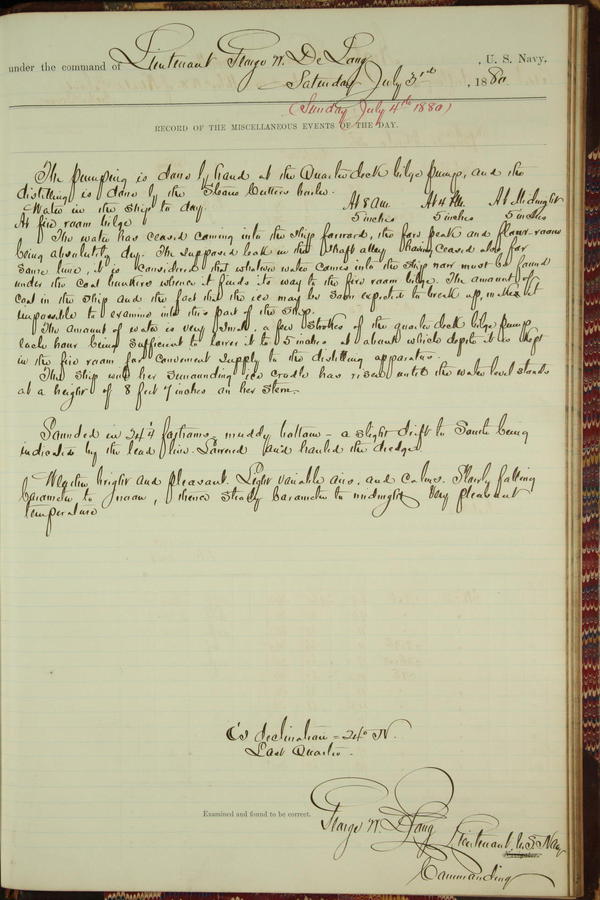 under the command of Lieutenant George W. De Long, U. S. Navy,
Saturday July 3rd, 1880.
(Sunday July 4th 1880)
RECORD OF THE MISCELLANEOUS EVENTS OF THE DAY.
The pumping is done by hand at the Quarter deck bilge pump, and the
distilling is done by the Steam Cutters boiler.
Water in the ship to day. At 8 am. At 4 P.M. At Midnight
At fire room bilge 5 inches 5 inches 5 inches
The water has ceased coming into the ship forward, the fore peak and floor-rooms
being absolutely dry. The supposed leak in the shaft alley having ceased also for
some time, it is considered that whatever water comes into the ship now must be found
under the coal bunkers whence it finds its way to the fire room bilge. The amount of
coal in the ship and the fact that the ice may be soon expected to break up, makes it
impossible to examine into this part of the ship.
The amount of water is very small, a few strokes of the quarter deck bilge pump
each hour being sufficient to lower it to 5 inches at abaout which depth it is kept
in the fire room for convenient supply to the distilling apparatus.
The ship with her surrounding ice cradle has risen until the water level stands
at a height of 8 feet 7 inches on her stem.
Sounded in 24¼ fathoms, muddy bottom - a slight drift to South being
indicated by the lead line. Lowered and hauled the dredge.
Weather bright and pleasant. Light variable airs, and calms. Slowly falling
barometer to noon, thence steady barometer to midnight. Very pleasant
temperature
☾'s declination = 24° N.
Last Quarter.
Examined and found to be correct.
George W. De Long Lieutenant, U.S. Navy
Navigator.
Commanding